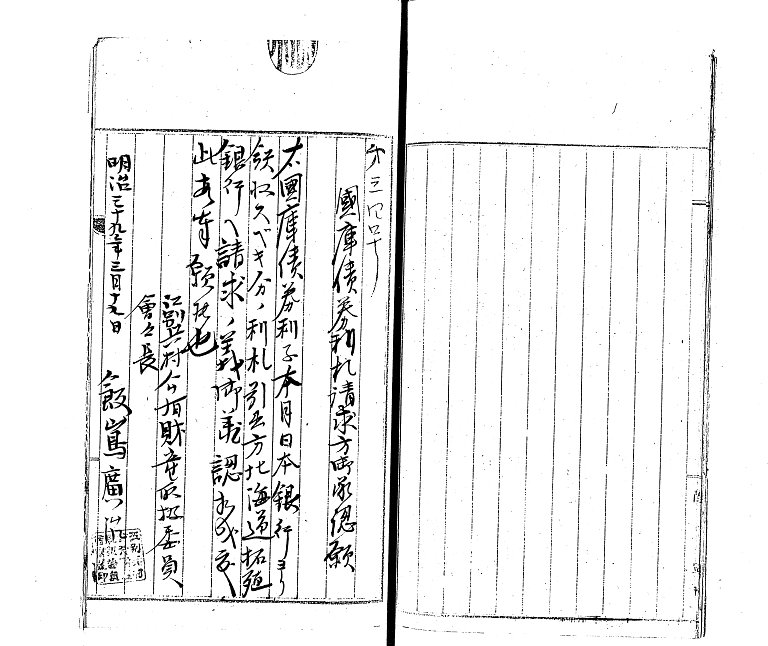 第三四号
國庫債券利札請求方御承認願
本國庫債券利子本月日本銀行ヨリ
領収スベキ分ノ利札引去方北海道拓殖
銀行ヘ請求ノ義御承認相成度
此段奉願候也
江別兵村公有財産取扱委員
會々長
明治三十九年三月十九日 飯嶌廣